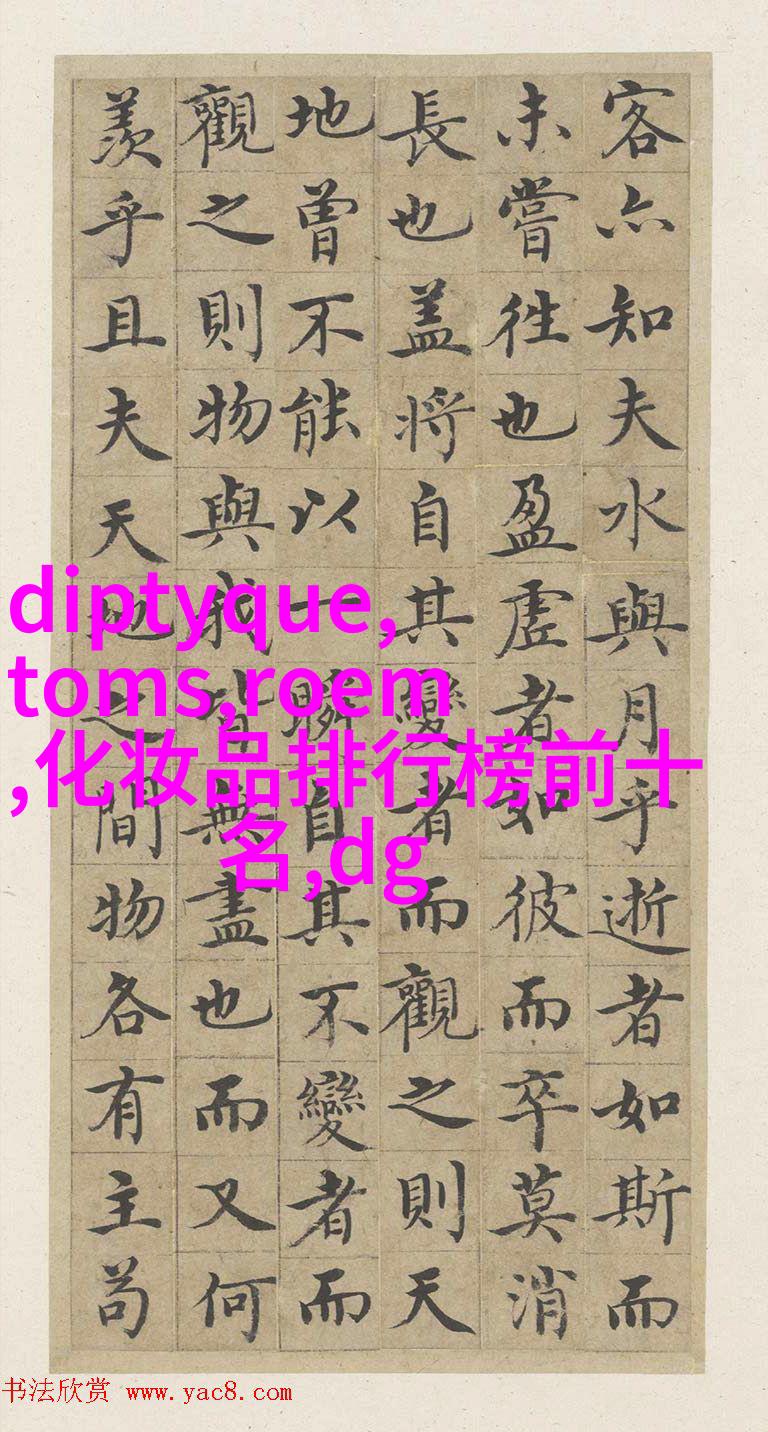 客亦知夫水與月乎逝者如斯而
未嘗往也盈虛者如彼而卒莫消
長也盖將自其變者而觀之則天
地曾不能以一瞬自其不變者而
觀之則物與我皆無盡也而又何
羨乎且夫天地之間物各有主苟
diptyque,
toms,roem
,化妆品排行榜前十
名,dg
书法欣赏 www.yac8.com